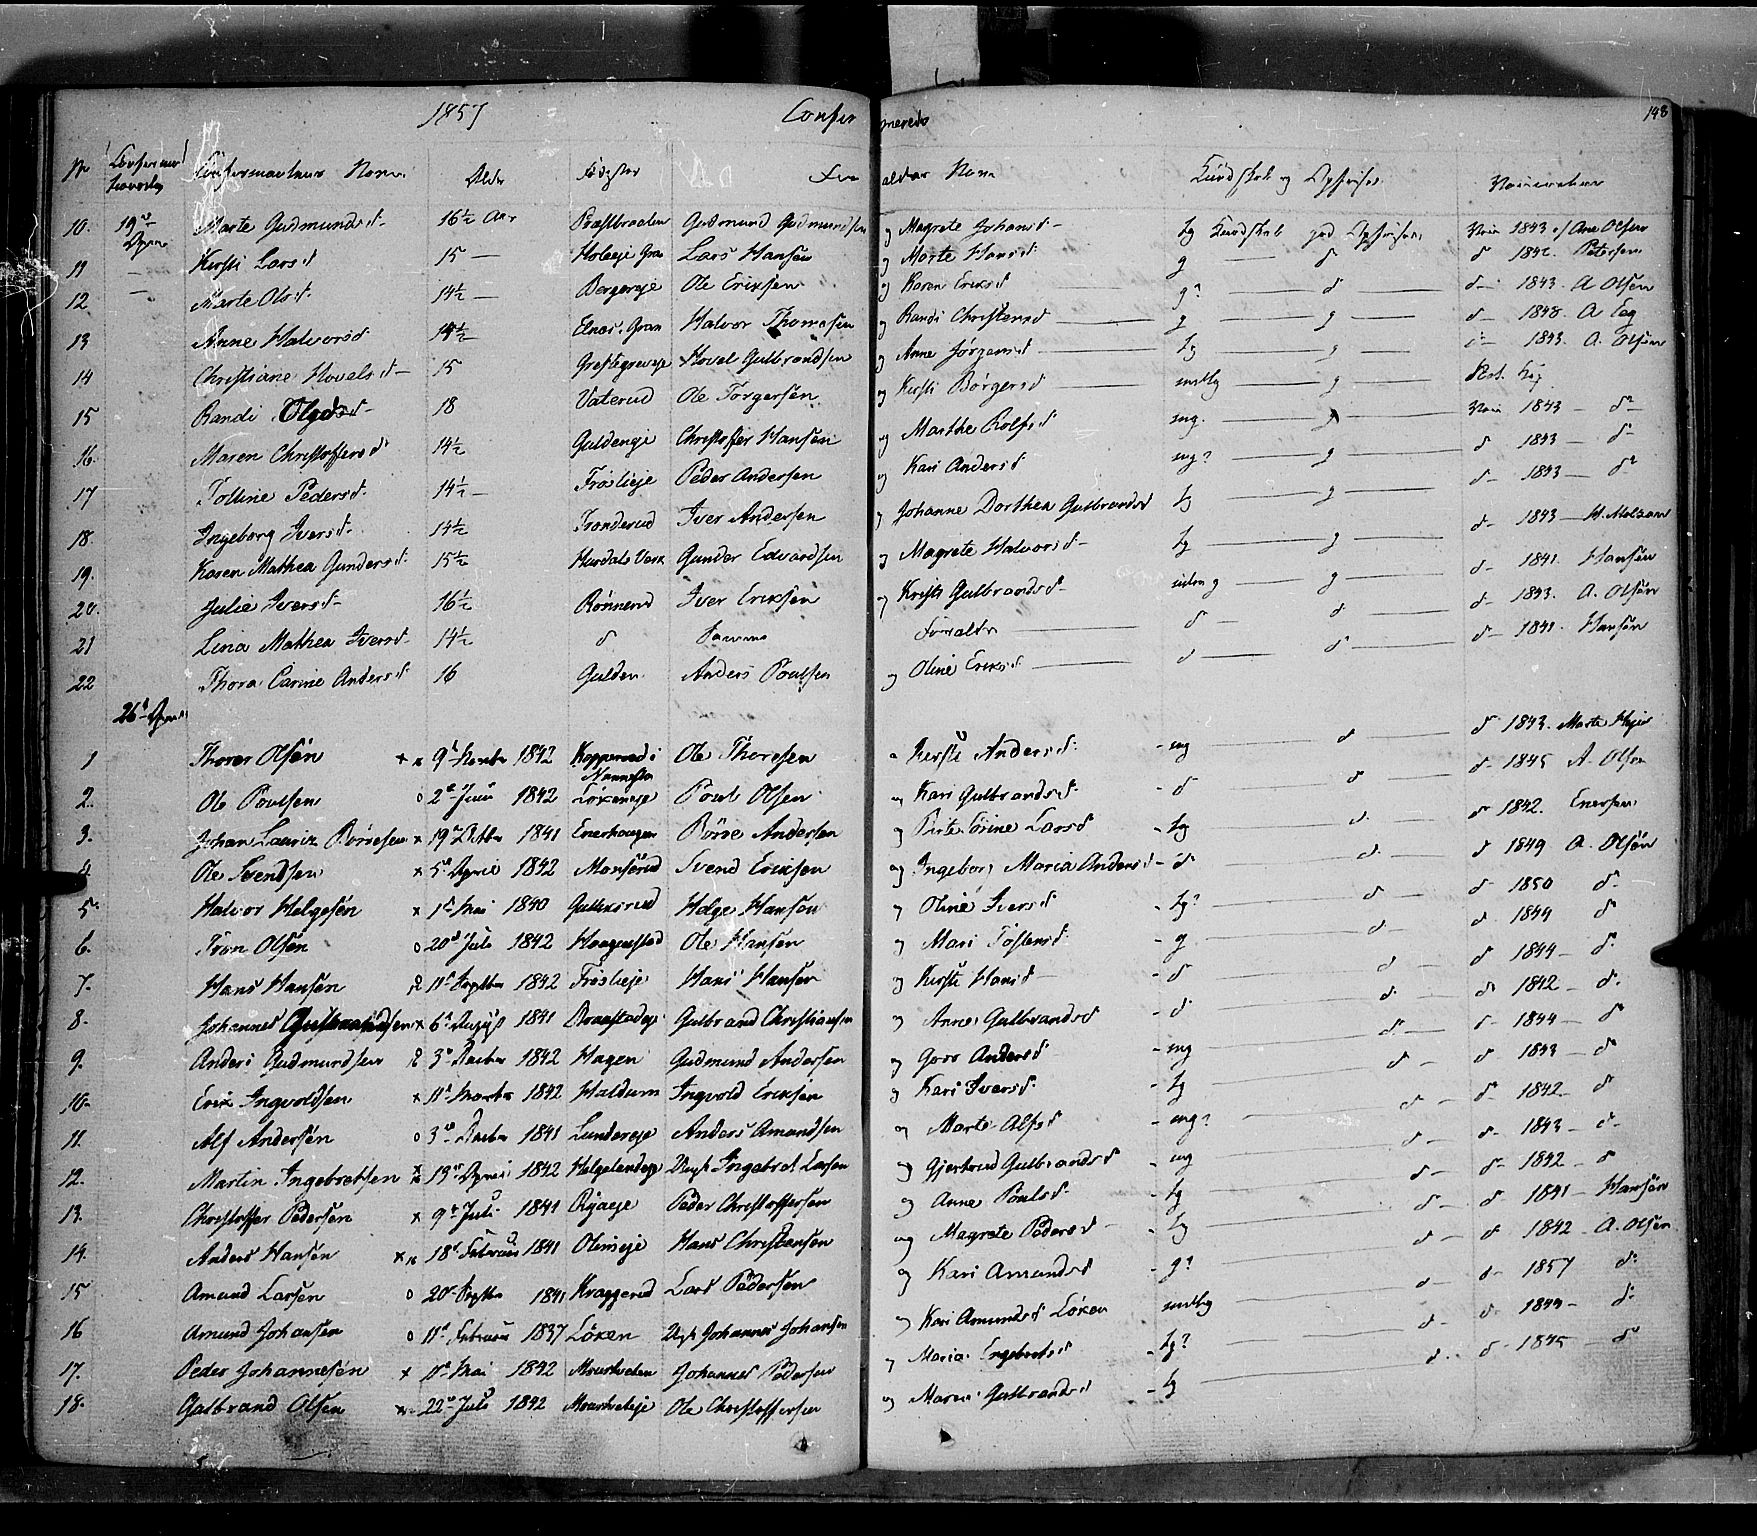 1857 Confir merede 148
No Confirmationsdag Confirmantens Navn Alder Fødested For ældres Navn Kundskab og Opførsel Vaccination
10. 19de April Marte Gudmundsd. 16½ Aar Præstbraaten Gudmund Gudmundsen og Magrete Johansd. tg Kundskab god Opførsel Vacc 1843 af Ane Olsen
11 — Kirsti Larsd 15 — Holeeje Gran Lars Hansen og Marte Hansd. g d d 1842. Petersen
12. — Marte Olsd. 14½ — Bergereje Ole Eriksen og Karen Eriksd g? d d 1843. A Olsen
13 Anne Halvorsd 14½ Elnæs, Gran Halvor Thomesen og Randi Christensd g g d 1848. A
14 Christiane Hovelsd. 15 Hovel Gulbrandsen og Anne Jørgensd tg g d 1843. A. Olsen
15 Randi Olsd. 18 Vaterud Ole Torgersen og Kirsti Børgersd mdlg g
16. Maren Christoffersd 14½ Guldeneje Christoffer Hansen og Marthe Rolfsd mg. g Vacc 1843 — do
17 Tolline Pedersd. 14½ — Frøslieje Peder Andersen og Kari Andersd mg? g d 1843 — do
18. Ingeborg Iversd. 14½ Tronderud Iver Andersen og Johanne Dorthea Gulbrandsd tg g d 1843 — do
19. Karen Mathea Gundersd. 15½ Hurdals Verk Gunder Edvardsen og Magrete Halvorsd. tg g d 1843
20. Julie Iversd. 16½ Rønnerud Iver Eriksen og Kirsti Gulbrandsd. g g d 1841. Hansen
21 Lina Mathea Iversd. 14½ d Samme Forældre d d d 1843. A. Olsen
22 Thora Carine Andersd. 16 Gulden Anders Poulsen og Oline Eriksd d d d 1841. Hansen
26de April
1 Thorer Olsen 9de 1842 Kopperud i Nannestad Ole Thoresen og Kirsti Andersd. mg d d 1843. Marte
2. Ole Poulsen 2den Juni 1842 Løkeneje Poul Olsen og Kari Gulbrandsd. d d d 1845 A. Olsen
3. Johan Lauriz Børresen 19de Octbr 1841 Enerhougen Børre Andersen og Birte Larsd tg d d 1842. Enersen
4. Ole Svendsen 5te April 1842 Monserud Svend Eriksen og Ingeborg Maria Andersd. d d d 1849 A. Olsen
5. Halvor Helgesen 1ste Mai 1840 Gulliksrud Helge Hansen og Oline Iversd tg? d d 1850 d
6. Tron Olsen 20de Juli 1842 Haagenstad Ole Hansen og Mari Tostensd. g d d 1844 d
7. Hans Hansen 11te Septbr 1842 Frøslieje Hans Hansen og Kirsti Hansd. d d d 1844 d
8. Johannes Gulbrandsen 6te August 1841 Gulbrand Christiansen og Anne Gulbrandsd d d d 1842 d.
9. Anders Gudmundsen 3de 1842 Hagen Gudmund Andersen og Goro Andersd mg d d 1844 d
10. Erik Ingvoldsen 11te 1842 Haldum Ingvold Eriksen og Kari Iversd. tg d d 1843 d
11. Alf Andersen 3de 1841 Lundereje Anders Amundsen og Marte Alfsd mg? d d 1842 d
12. Martin Ingebretsen 19de April 1842 Helgelandeje Ingebret Larsen og Gjertrud Gulbrandsd mg d d 1843 d
13. Christoffer Pedersen 9de Juli 1841 Peder Christoffersen og Anne Poulsd. tg d d 1842 d
14. Anders Hansen 18de Februar 1841 Hans Christiansen og Magrete Pedersd tg d d 1841 Hansen
15 Amund Larsen 20de Septbr 1841 Kraggerud Lars Pedersen og Kari Amundsd g? d d 1842 A. Olsen
16 Amund Johansen 11te Februar 1837 Løken Johannes Johansen og Kari Amundsd Løken mdlg d d 1857 d
17. Peder Johannesen Mai 1842 Johannes Pedersen og Maria Engebretsd tg? d d 1844 d
18. Gulbrand Olsen 22de Juli 1842 Ole Christoffersen og Maren Gulbrandsd tg d d 1845 d